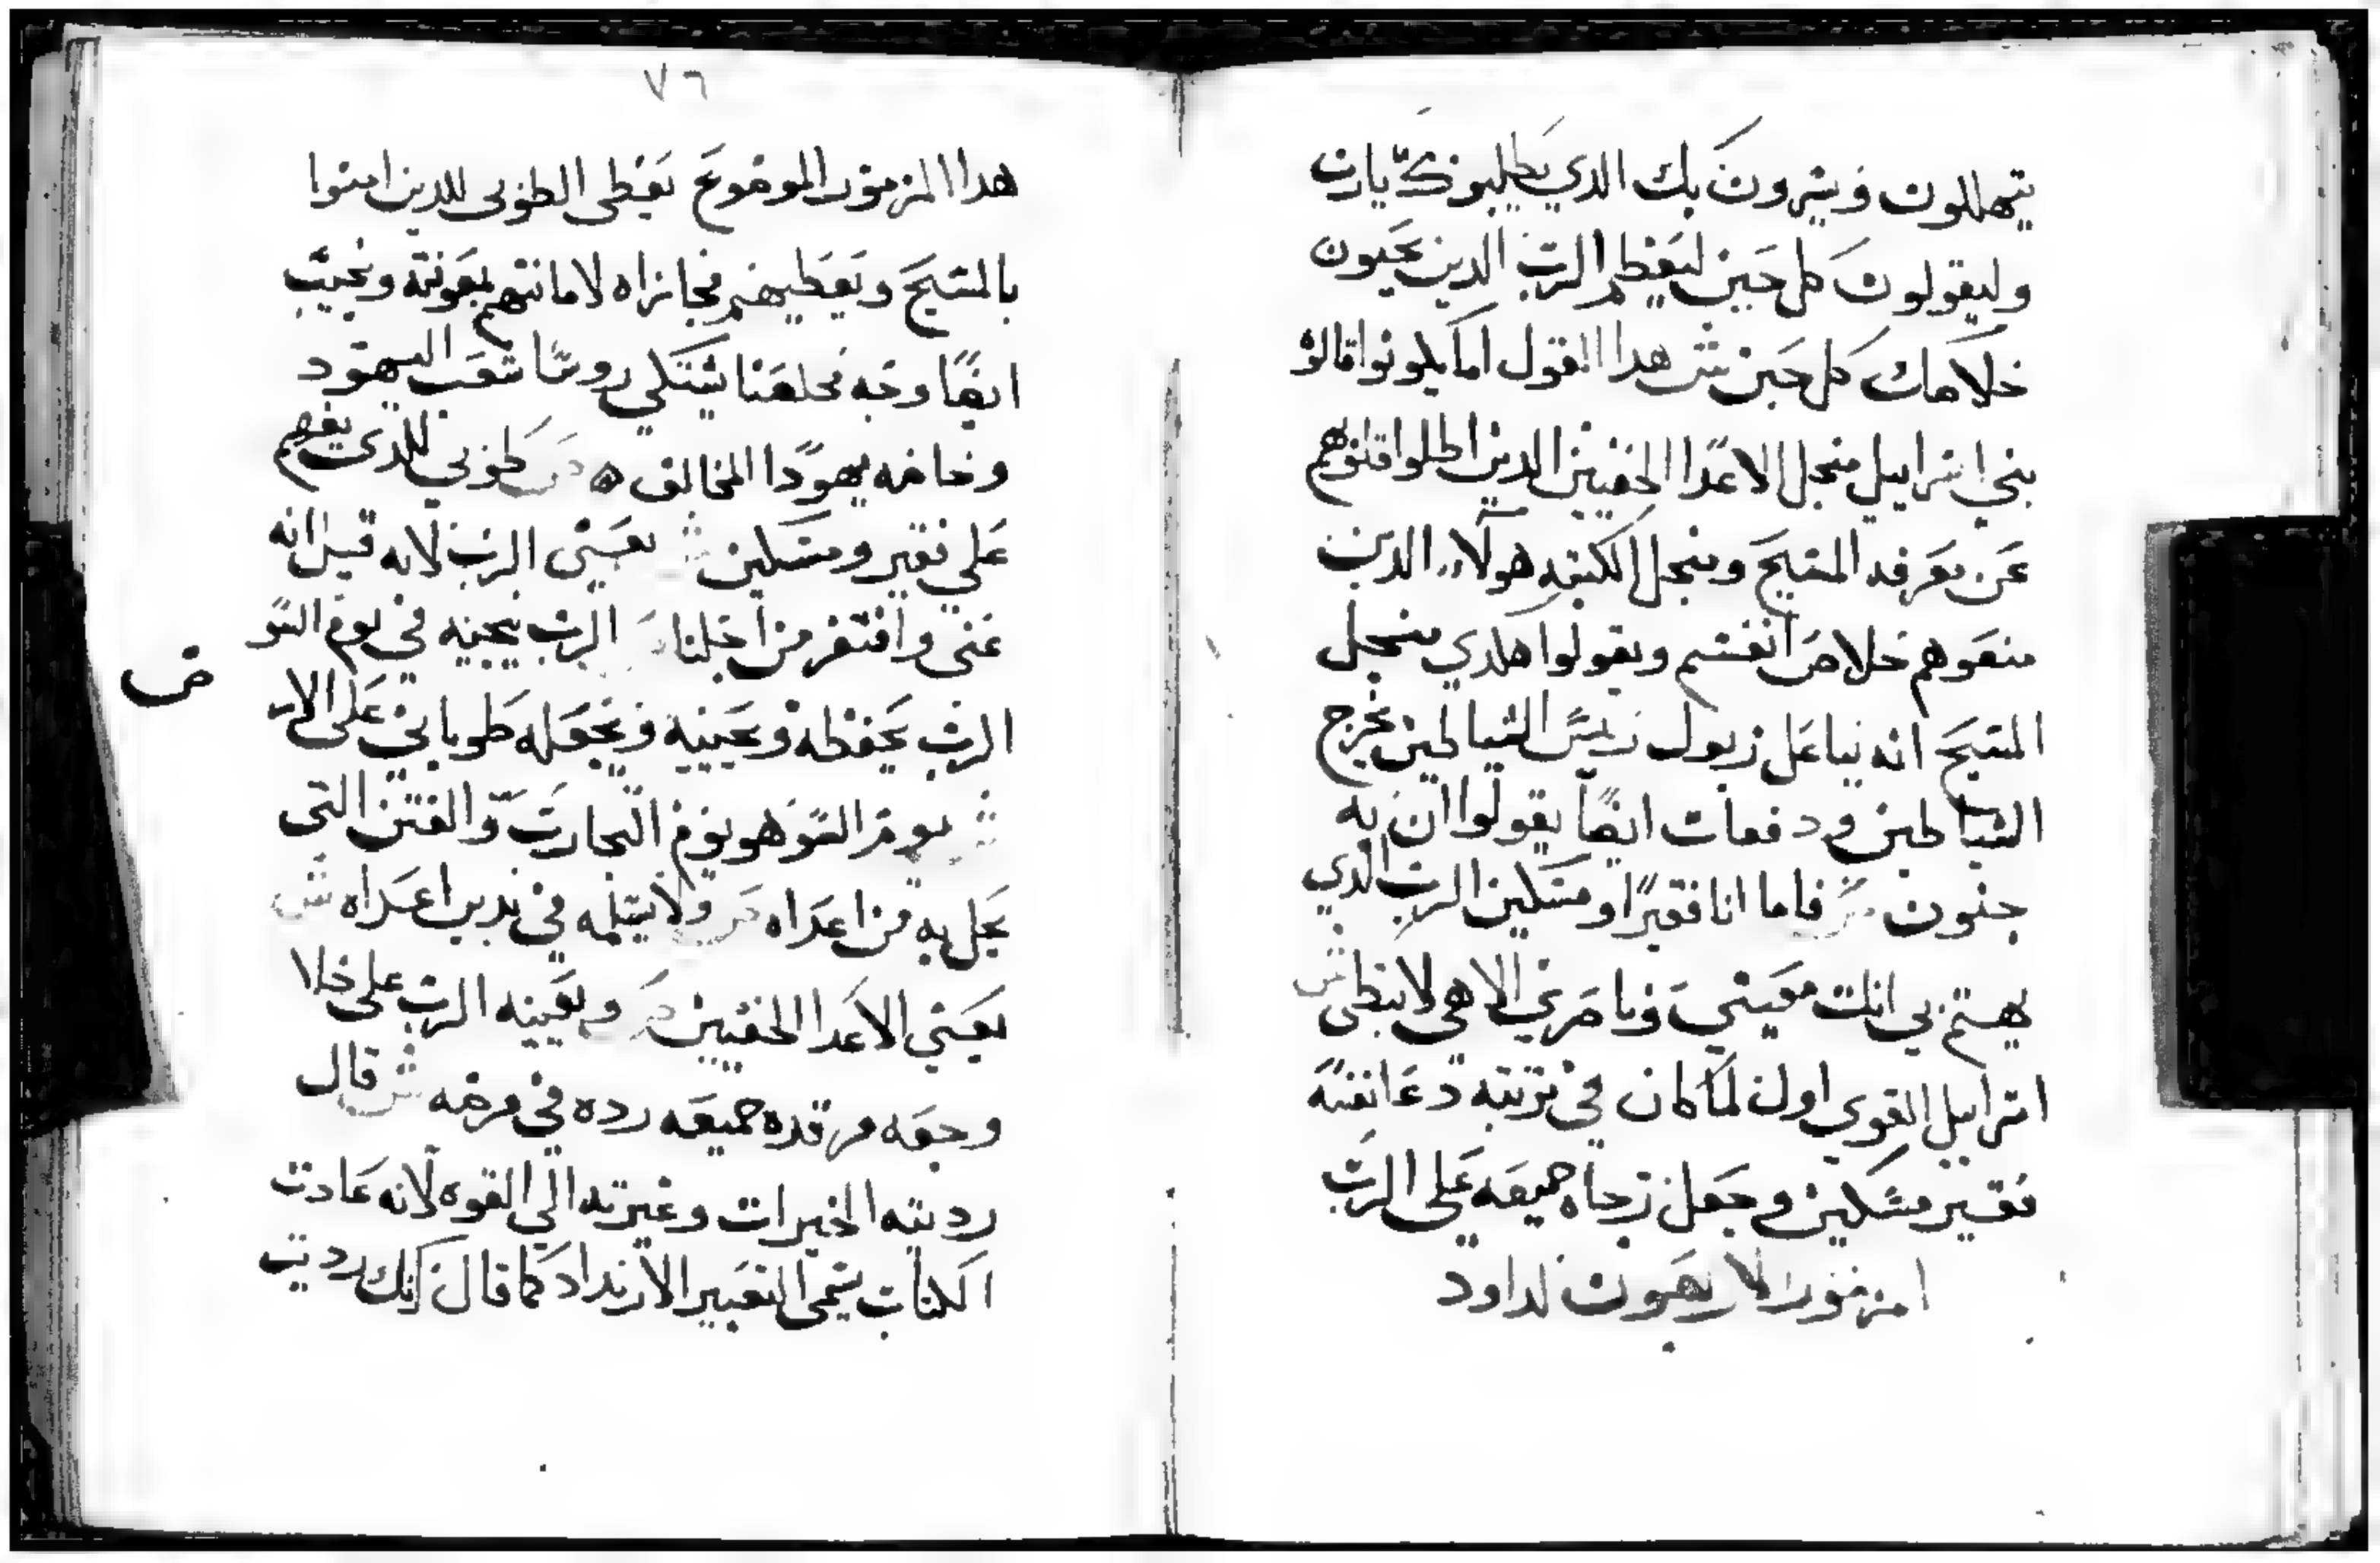 يتهللون ويسرون بك الدي يطلبونك يارب
وليقولون كل حين ليعظم الرب الدين يحبون
خلاصك كل حين ش هدا القول اما يكونوا قالوا
بني اسراييل منجل الاعدا الخفيين الدين اطلوا قلوبهم
عن معرفه المسيح ومنجل الكتبه هولاء الدين
منعوهم خلاص انفسهم ويقولوا هكدي منجل
المسيح انه بباعل زبول رييس الشياطين يخرج
الشياطين ودفعات ايضًا يقولوا ان به
جنون من فاما انا فقيرًا ومسكين الرب الدي
يهتم بي انت معيني وناصري الاهي لا تبطى ش
اسراييل القوي اول لما كان في تربيته دعا نفسه
فقير مسكين وجعل رجاه جميعه على الرب
مزمور لداود
٧٦
هدا المزمور الموضوع يعطى الطوبى للدين امنوا
بالمسيح ويعطيهم مجازاه لامانتهم بمعونته ونحيب
ايضًا وجه مخلصنا يشتكي روسًا شعب اليهود
وخاصه يهودا المخالف ه من طوبي للدى يفهم
علي فقير ومسكين ش يعني الرب لانه قيل انه
غني وافتقر من اجلنا من الرب ينجيه في يوم السو
ص
الرب يحفظه ويحييه ويجعله طوباني على الار
ش يوم السو هو يوم التجارب والفتن التى
تحل به من اعداه من ولا يسلمه في يدين اعداه ش
يعني الاعدا الخفيين من ويعينه الرب على خلا
وجعه مرقده جميعه رده في مرضه ش قال
رديته الخيرات وغيرته الي القوه لانه عادت
الكتاب يسمى التغيير الارتداد كما قال انك رديت